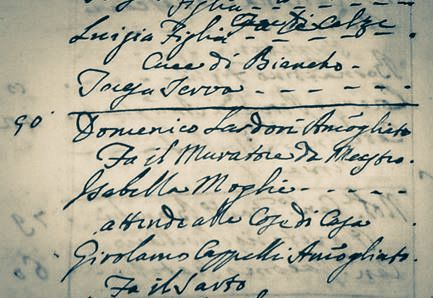 Figlia
Luigia Figlia fa le Calze
Cuce di Biancho -
Serva - - - - -
90 Domenico Sardori Amogliato
Fa il Muratore da Mastro.
Isabella Moglie - - - - -
attende alle Cose di Casa
Girolamo Cappelli Amogliato.
Fa il Sarto